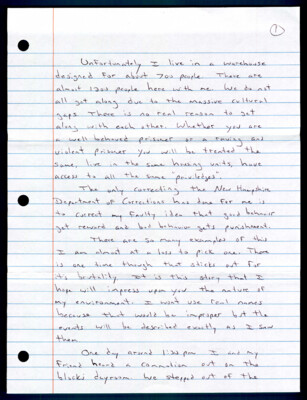 1
Unfortunately I live in a warehouse
designed for about 700 people. There are
almost 1200 people here with me. We do not
all get along due to the massive cultural
gaps. There is no real reason to get
along with each other. Whether you are
a well behaved prisoner or a raving and
violent prisoner you will be treated the
same, live in the same housing units, have
access to all the same "priviledges".
The only correcting the New Hampshire
Department of Corrections has done for me is
to correct my faulty idea that good behavior
get reward and bad behavior gets punishment.
There are so many examples of this
I am almost at a loss to pick one. There
is one time though that sticks out for
it's brutality. It is this story that I
hope will impress upon you the nature of
my environment. I wont use real names
because that would be improper but the
events will be described exactly as I saw
them.
One day around 1:00 pm I and my
friend heard a commotion out on the
blocks dayroom. We stepped out of the